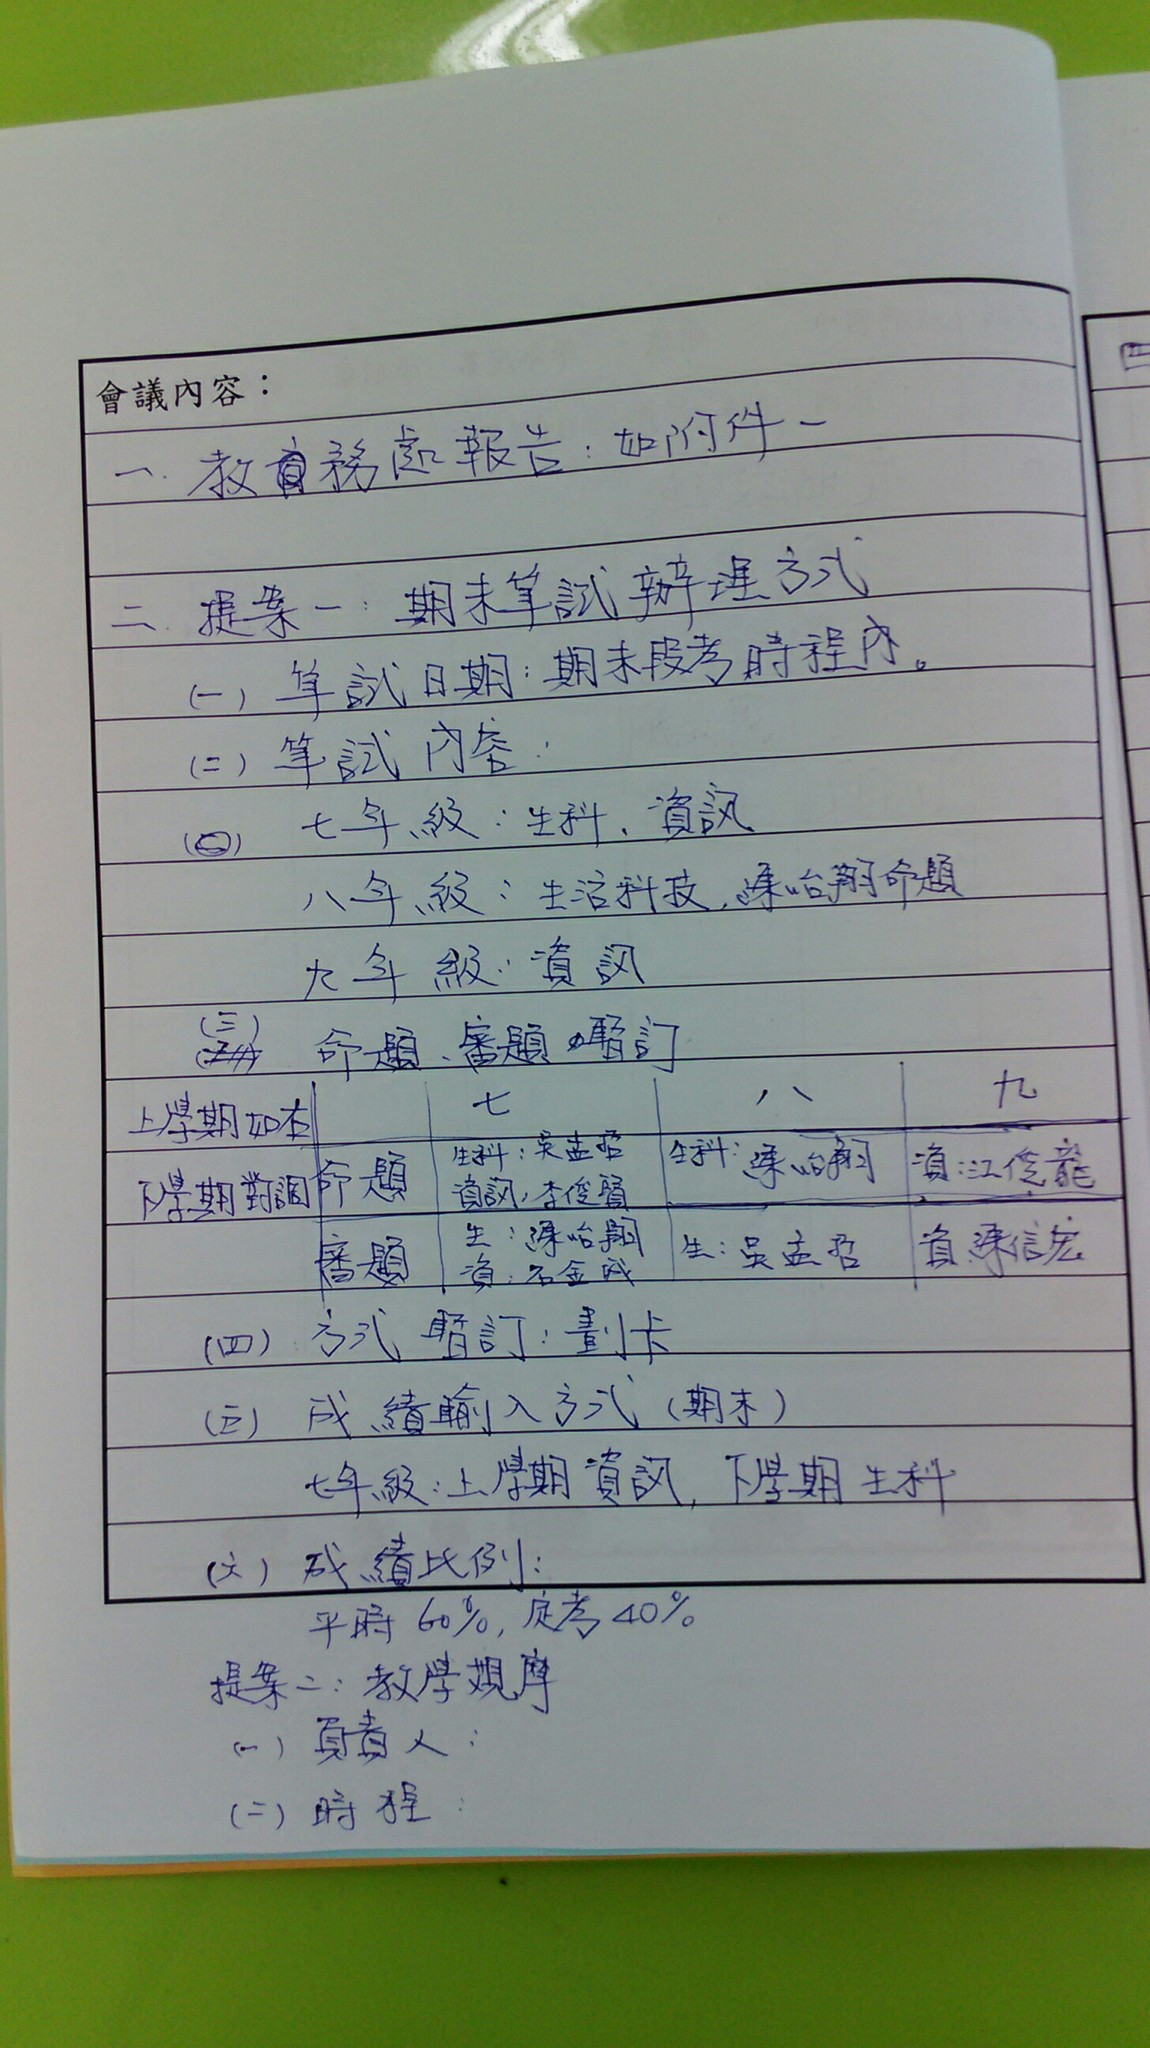 會議內容：
一. 教務處報告：如附件一
二. 提案一：期末筆試辦理方式
(一) 筆試日期：期末段考時程內。
(二) 筆試內容：
七年級：生科、資訊
八年級：生活科技，陳怡翔命題
九年級：資訊
(三) 命題、審題 暫訂
上學期如右 七 八 九
下學期對調 命題 生科：吳孟哲 資訊：李俊賢 生科：陳怡翔 資：江俊龍
審題 生：陳怡翔 資：石金成 生：吳孟哲 資 陳信宏
(四) 方式 暫訂：劃卡
(五) 成績輸入方式（期末）
七年級：上學期資訊，下學期生科
(六) 成績比例：
平時60%，定考40%
提案二：教學觀摩
(一) 負責人：
(二) 時程：